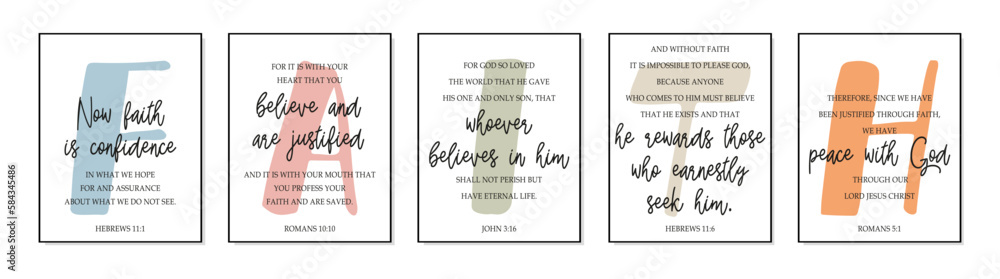 F
Now faith
is confidence
IN WHAT WE HOPE
FOR AND ASSURANCE
ABOUT WHAT WE DO NOT SEE.
HEBREWS 11:1
A
FOR IT IS WITH YOUR
HEART THAT YOU
believe and
are justified
AND IT IS WITH YOUR MOUTH THAT
YOU PROFESS YOUR
FAITH AND ARE SAVED.
ROMANS 10:10
I
FOR GOD SO LOVED
THE WORLD THAT HE GAVE
HIS ONE AND ONLY SON, THAT
whoever
believes in him
SHALL NOT PERISH BUT
HAVE ETERNAL LIFE.
JOHN 3:16
T
AND WITHOUT FAITH
IT IS IMPOSSIBLE TO PLEASE GOD,
BECAUSE ANYONE
WHO COMES TO HIM MUST BELIEVE
THAT HE EXISTS AND THAT
he rewards those
who earnestly
seek him.
HEBREWS 11:6
H
THEREFORE, SINCE WE HAVE
BEEN JUSTIFIED THROUGH FAITH,
WE HAVE
peace with God
THROUGH OUR
LORD JESUS CHRIST
ROMANS 5:1
Adobe Stock | #584345486